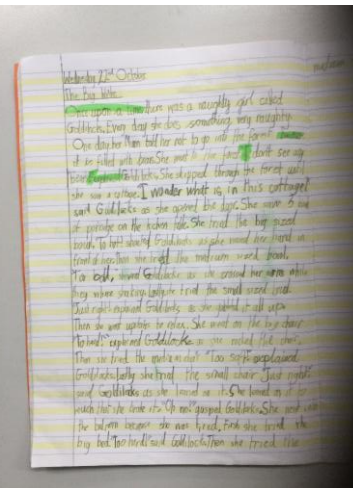 Wednesday 21st October
The Big Write
Once upon a time there was a naughty girl called
Goldilocks. Every day she does something very naughty.
One day her Mum told her not to go into the forest
it be filled with bears. She went to the forest "I don't see any
bears" Goldilocks. She skipped through the forest until
she saw a cottage. "I wonder what is in this cottage"
said Goldilocks as she opened the door. She saw 3
of porridge on the kitchen table. She tried the big sized
bowl. To hot! shouted Goldilocks as she waved her hand in
front of her. Then she tried the medium sized bowl.
To cold, Goldilocks as she around her arms
they where shaking. Lastly she tried the small sized bowl.
Just right! explained Goldilocks as she gobbled it all up.
Then she went upstairs to relax. She went on the big chair
To hard! explained Goldilocks as she the chair.
Then she tried the medium chair Too soft explained
Goldilocks. Lastly she tried the small chair "Just right"
said Goldilocks as she on it. She on it so
much that she broke it. "Oh no!" gasped Goldilocks. She went into
the bedroom because she was tired. First she tried the
big bed. "Too hard!" said Goldilocks. Then she tried the